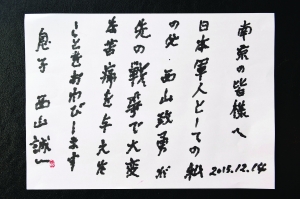 南京の皆様へ
日本軍人としての私
の父 西山政勇が
先の戦争で大変
な苦痛を与えた
ことをおわびします
2015.12.14
息子 西山誠一